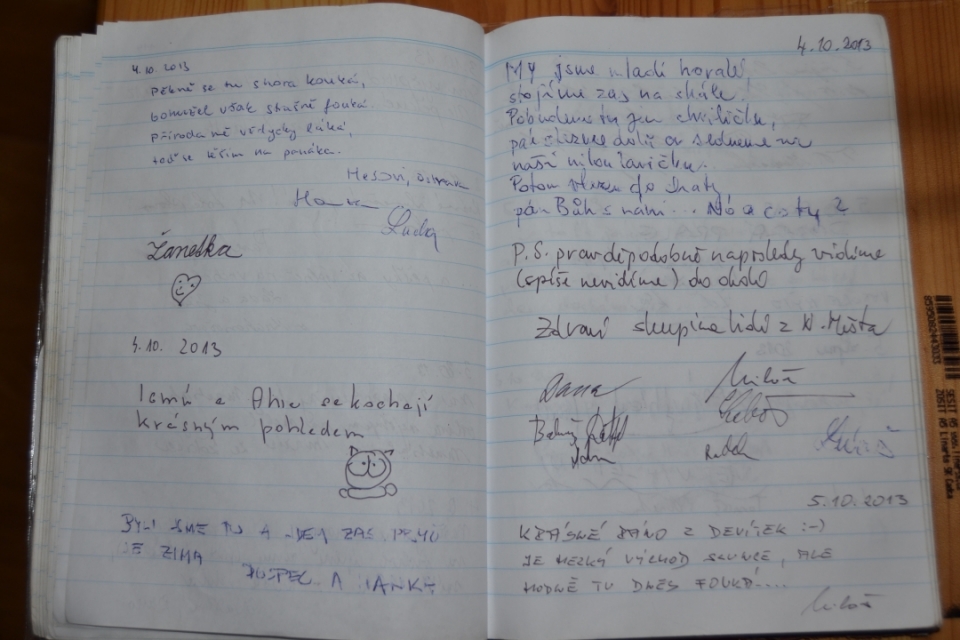 4.10.2013
pěkně se tu shora kouká,
bohužel však slušně fouká
příroda mě vždycky láká,
teď se těším na panáka.
Ostrava
Hanka
Žanetka
4.10. 2013
a se kochají
krásným pohledem
BYLI SME TU A ZAS
JE ZIMA
A
4.10.2013
MY jsme mladí horalé,
stojíme zas na skále.
Pobudeme tu jen chviličku,
pak dolů a sedneme na
naši milou lavičku.
Potom do chaty,
pán Bůh s námi... No a co ty?
P.S. pravděpodobně naposledy vidíme
(spíše nevidíme) do okolí
Zdraví skupina lidí z N. Města
Dana
Miloš
Luboš
Radek
5.10.2013
KRÁSNÉ RÁNO Z DEVÍTEK :-)
JE HEZKÝ VÝCHOD SLUNCE, ALE
HODNĚ TU DNES FOUKÁ....
Miloš
9595026443033
SEŠIT A5
ZOŠIT A5